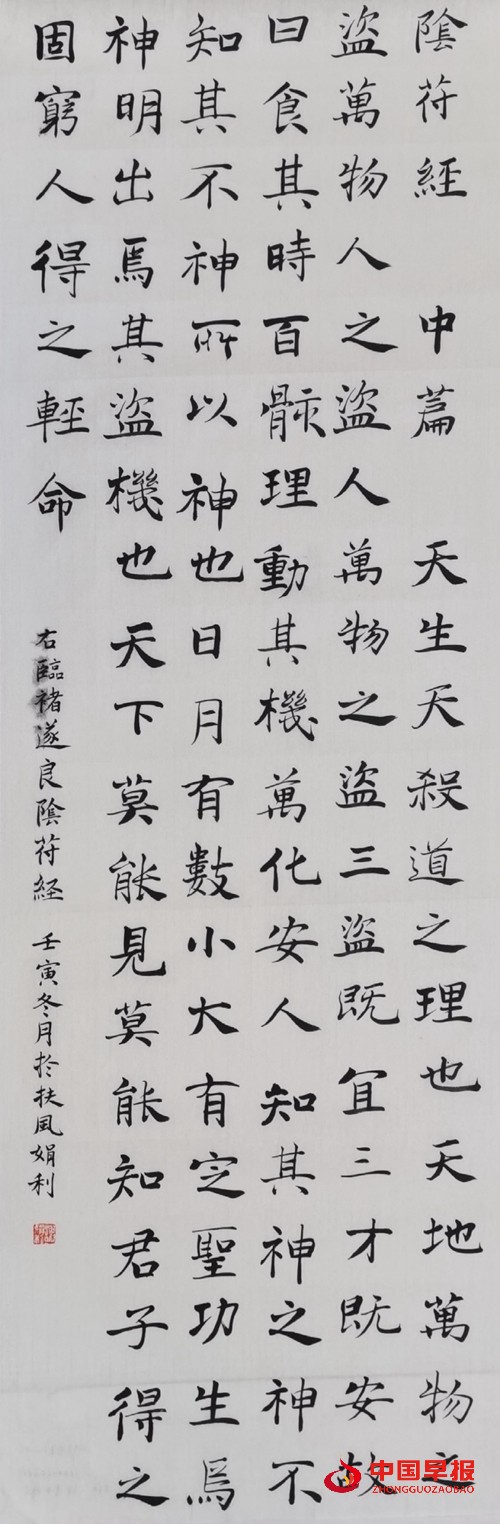 陰苻經 中篇 天生天殺道之理也天地萬物之
盜萬物人之盜人萬物之盜三盜既宜三才既安故
曰食其時百骸理動其機萬化安人知其神之神不
知其不神所以神也日月有數小大有定聖功生焉
神明出焉其盜機也天下莫能見莫能知君子得之
固窮人得之輕命
右臨褚遂良陰苻経 壬寅冬月於扶風娟利
中国早报
ZHONGGUOZAOBAO